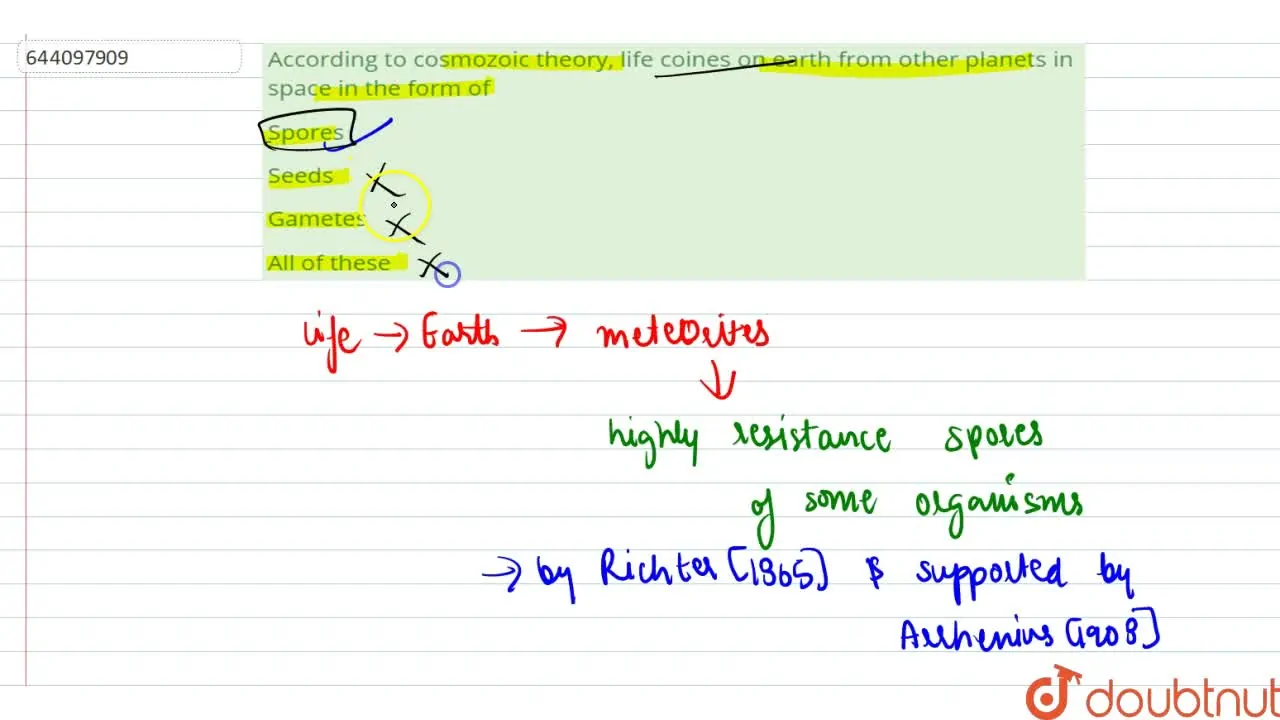 644097909
According to cosmozoic theory, life coines on earth from other planets in
space in the form of
Spores
Seeds
Gametes
All of these
life → Earth → meteorites
↓
highly resistance spores
of some organisms
→ by Richter [1865] & supported by
Arrhenius [1908]
doubtnut